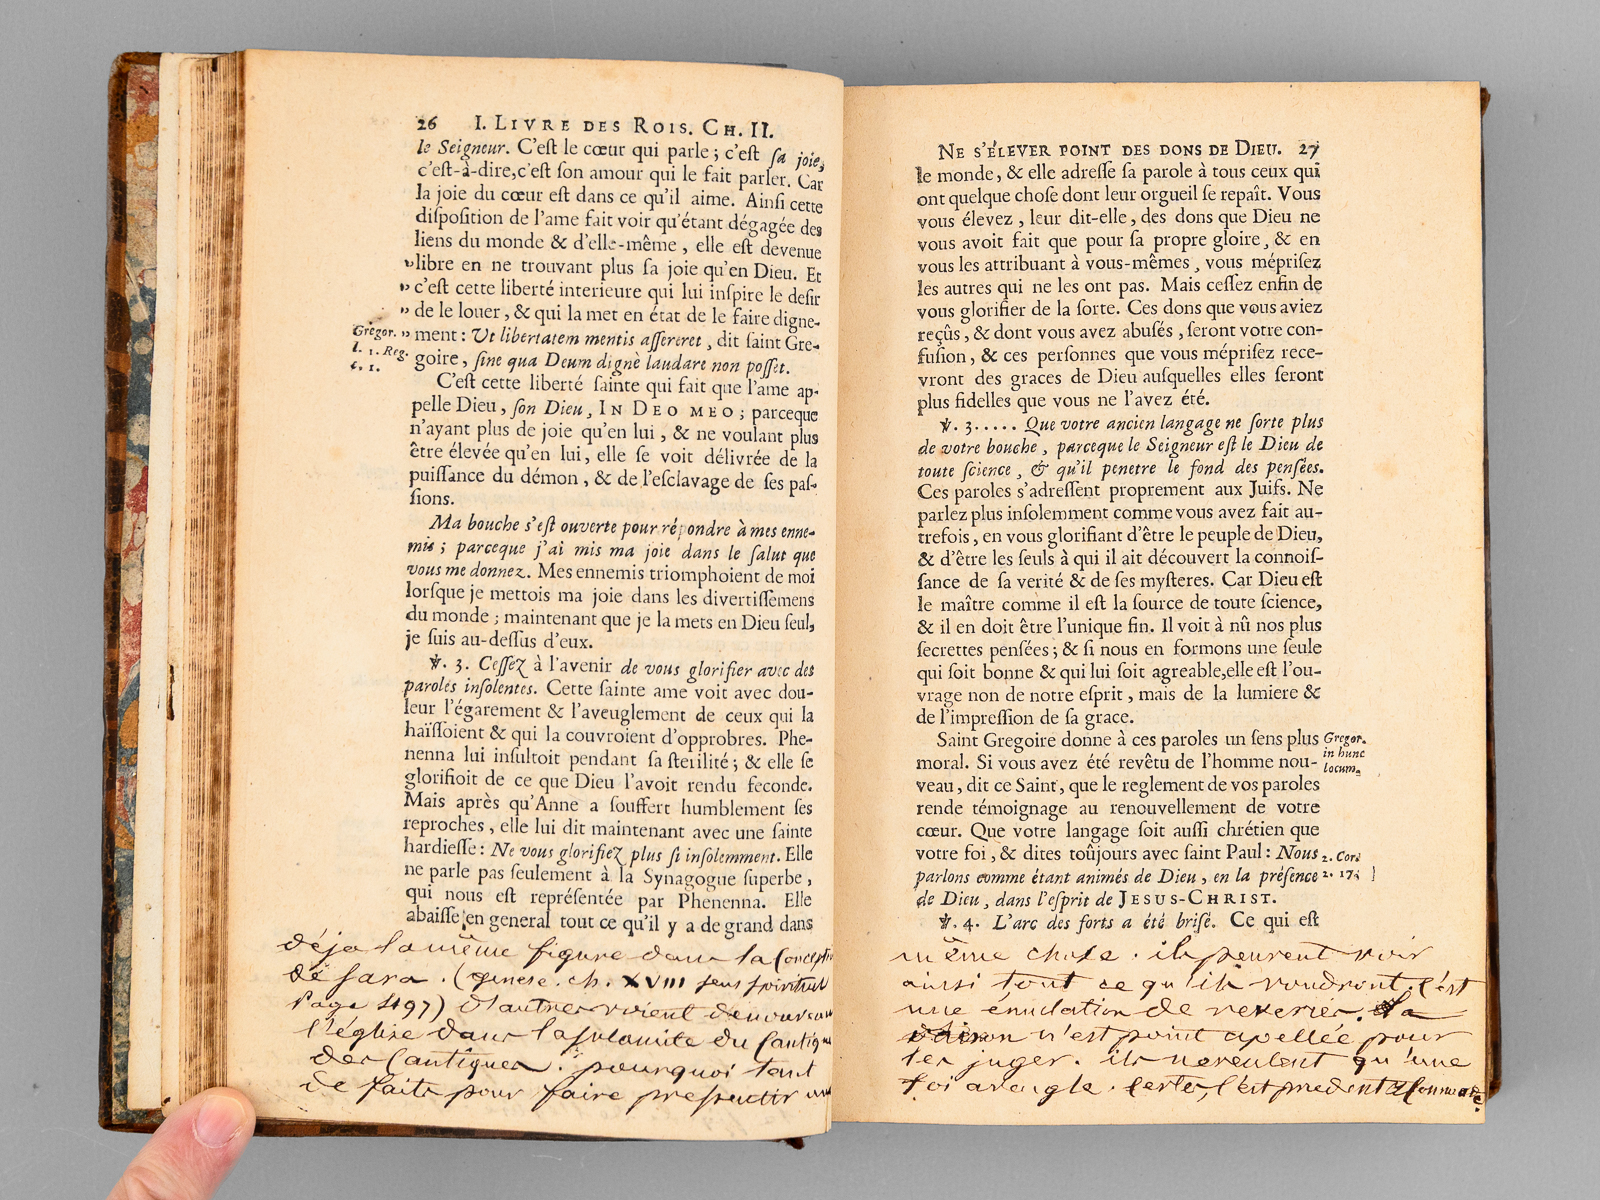 26 I. LIVRE DES ROIS. CH. II.
le Seigneur. C'eſt le cœur qui parle ; c'eſt ſa joie,
c'eſt-à-dire,c'eſt ſon amour qui le fait parler. Car
la joie du cœur eſt dans ce qu'il aime. Ainſi cette
diſpoſition de l'ame fait voir qu'étant dégagée des
liens du monde & d'elle-même, elle eſt devenue
» libre en ne trouvant plus ſa joie qu'en Dieu. Et
» c'eſt cette liberté interieure qui lui inſpire le deſir
» de le louer, & qui la met en état de le faire digne-
Gregor. » ment : Ut libertatem mentis aſſereret, dit ſaint Gre-
l. 1. Reg.
c. 1.
goire, ſine qua Deum dignè laudare non poſſet.
C'eſt cette liberté ſainte qui fait que l'ame ap-
pelle Dieu, ſon Dieu, IN DEO MEO ; parceque
n'ayant plus de joie qu'en lui, & ne voulant plus
être élevée qu'en lui, elle ſe voit délivrée de la
puiſſance du démon, & de l'eſclavage de ſes paſ-
ſions.
Ma bouche s'eſt ouverte pour répondre à mes enne-
mis ; parceque j'ai mis ma joie dans le ſalut que
vous me donnez. Mes ennemis triomphoient de moi
lorſque je mettois ma joie dans les divertiſſemens
du monde ; maintenant que je la mets en Dieu ſeul,
je ſuis au-deſſus d'eux.
℣. 3. Ceſſez à l'avenir de vous glorifier avec des
paroles inſolentes. Cette ſainte ame voit avec dou-
leur l'égarement & l'aveuglement de ceux qui la
haïſſoient & qui la couvroient d'opprobres. Phe-
nenna lui inſultoit pendant ſa ſterilité ; & elle ſe
glorifioit de ce que Dieu l'avoit rendu feconde.
Mais après qu'Anne a ſouffert humblement ſes
reproches, elle lui dit maintenant avec une ſainte
hardieſſe : Ne vous glorifiez plus ſi inſolemment. Elle
ne parle pas ſeulement à la Synagogue ſuperbe,
qui nous eſt repréſentée par Phenenna. Elle
abaiſſe en general tout ce qu'il y a de grand dans
déja la même figure dans la Concept
de sara. (genese. ch. XVIII sens spirituel
Page 497) d'autres voient
l'église dans la sulamite du Cantiqu
des Cantiques. pourquoi tant
de faits pour faire pressentir un
NE S'ÉLEVER POINT DES DONS DE DIEU. 27
le monde, & elle adreſſe ſa parole à tous ceux qui
ont quelque choſe dont leur orgueil ſe repaît. Vous
vous élevez, leur dit-elle, des dons que Dieu ne
vous avoit fait que pour ſa propre gloire, & en
vous les attribuant à vous-mêmes, vous mépriſez
les autres qui ne les ont pas. Mais ceſſez enfin de
vous glorifier de la ſorte. Ces dons que vous aviez
reçûs, & dont vous avez abuſés, ſeront votre con-
fuſion, & ces perſonnes que vous mépriſez rece-
vront des graces de Dieu auſquelles elles ſeront
plus fidelles que vous ne l'avez été.
℣. 3..... Que votre ancien langage ne ſorte plus
de votre bouche, parceque le Seigneur eſt le Dieu de
toute ſcience, & qu'il penetre le fond des penſées.
Ces paroles s'adreſſent proprement aux Juifs. Ne
parlez plus inſolemment comme vous avez fait au-
trefois, en vous glorifiant d'être le peuple de Dieu,
& d'être les ſeuls à qui il ait découvert la connoiſ-
ſance de ſa verité & de ſes myſteres. Car Dieu eſt
le maître comme il eſt la ſource de toute ſcience,
& il en doit être l'unique fin. Il voit à nû nos plus
ſecrettes penſées ; & ſi nous en formons une ſeule
qui ſoit bonne & qui lui ſoit agreable,elle eſt l'ou-
vrage non de notre eſprit, mais de la lumiere &
de l'impreſſion de ſa grace.
Saint Gregoire donne à ces paroles un ſens plus Gregor.
in hunc
locum.
moral. Si vous avez été revêtu de l'homme nou-
veau, dit ce Saint, que le reglement de vos paroles
rende témoignage au renouvellement de votre
cœur. Que votre langage ſoit auſſi chrétien que
votre foi, & dites toûjours avec ſaint Paul : Nous 2. Cor.
parlons comme étant animés de Dieu, en la préſence 2. 17.
de Dieu, dans l'eſprit de JESUS-CHRIST.
℣. 4. L'arc des forts a été briſé. Ce qui eſt
même chose. ils peuvent voir
ainsi tout ce qu'ils voudront. C'est
une émulation de reveries. la
n'est point apellée pour
les juger. ils ne veulent qu'une
foi aveugle. Certes, C'est